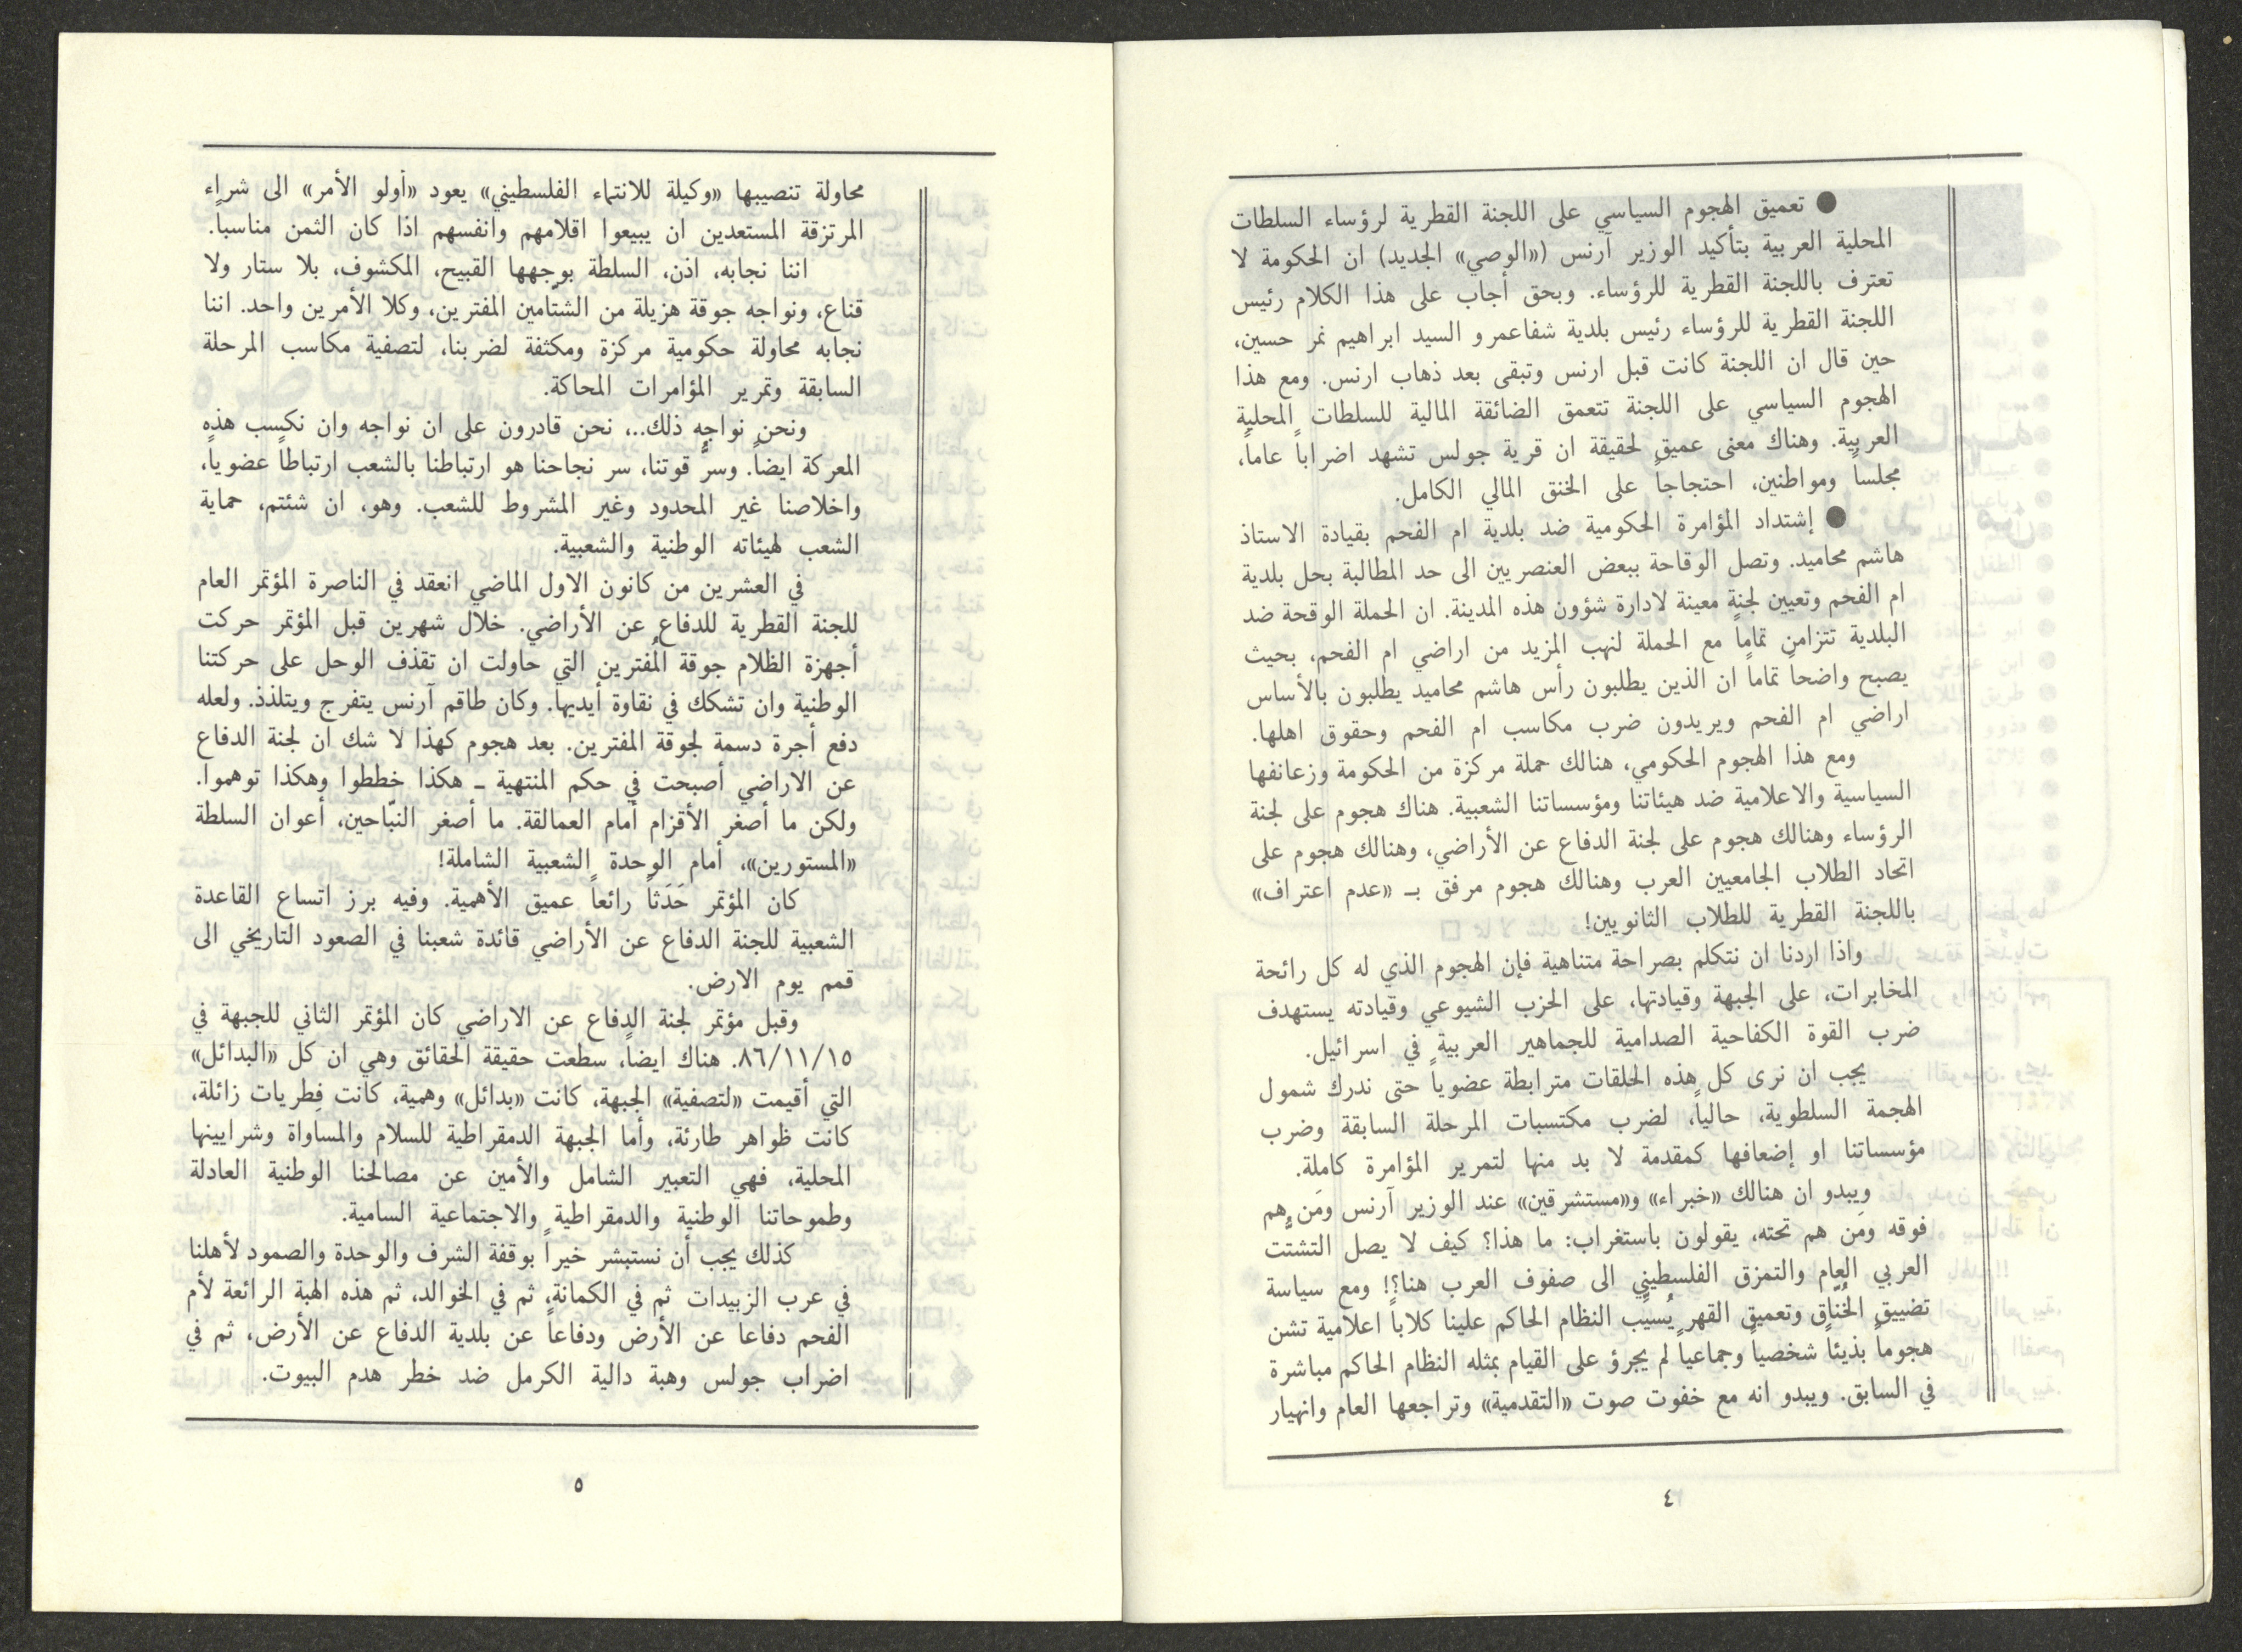 ● تعميق الهجوم السياسي على اللجنة القطرية لرؤساء السلطات
المحلية العربية بتأكيد الوزير آرنس («الوصي» الجديد) ان الحكومة لا
تعترف باللجنة القطرية للرؤساء. وبحق أجاب على هذا الكلام رئيس
اللجنة القطرية للرؤساء رئيس بلدية شفاعمرو السيد ابراهيم نمر حسين،
حين قال ان اللجنة كانت قبل ارنس وتبقى بعد ذهاب ارنس. ومع هذا
الهجوم السياسي على اللجنة تتعمق الضائقة المالية للسلطات المحلية
العربية. وهناك معنى عميق لحقيقة ان قرية جولس تشهد اضراباً عاماً،
مجلساً ومواطنين، احتجاجاً على الخنق المالي الكامل.
● إشتداد المؤامرة الحكومية ضد بلدية ام الفحم بقيادة الاستاذ
هاشم محاميد. وتصل الوقاحة ببعض العنصريين الى حد المطالبة بحل بلدية
ام الفحم وتعيين لجنة معينة لادارة شؤون هذه المدينة. ان الحملة الوقحة ضد
البلدية تتزامن تماماً مع الحملة لنهب المزيد من اراضي ام الفحم، بحيث
يصبح واضحاً تماماً ان الذين يطلبون رأس هاشم محاميد يطلبون بالأساس
اراضي ام الفحم ويريدون ضرب مكاسب ام الفحم وحقوق اهلها.
ومع هذا الهجوم الحكومي، هنالك حملة مركزة من الحكومة وزعانفها
السياسية والاعلامية ضد هيئاتنا ومؤسساتنا الشعبية. هناك هجوم على لجنة
الرؤساء وهنالك هجوم على لجنة الدفاع عن الأراضي، وهنالك هجوم على
اتحاد الطلاب الجامعيين العرب وهنالك هجوم مرفق بـ «عدم اعتراف»
باللجنة القطرية للطلاب الثانويين!
واذا اردنا ان نتكلم بصراحة متناهية فإن الهجوم الذي له كل رائحة
المخابرات، على الجبهة وقيادتها، على الحزب الشيوعي وقيادته يستهدف
ضرب القوة الكفاحية الصدامية للجماهير العربية في اسرائيل.
يجب ان نرى كل هذه الحلقات مترابطة عضوياً حتى ندرك شمول
الهجمة السلطوية، حالياً، لضرب مكتسبات المرحلة السابقة وضرب
مؤسساتنا او إضعافها كمقدمة لا بد منها لتمرير المؤامرة كاملة.
ويبدو ان هنالك «خبراء» و«مستشرقين» عند الوزير آرنس ومَن هم
فوقه ومَن هم تحته، يقولون باستغراب: ما هذا؟ كيف لا يصل التشتت
العربي العام والتمزق الفلسطيني الى صفوف العرب هنا؟! ومع سياسة
تضييق الخُنّاق وتعميق القهر يُسيّب النظام الحاكم علينا كلاباً اعلامية تشن
هجوماً بذيئاً شخصياً وجماعياً لم يجرؤ على القيام بمثله النظام الحاكم مباشرة
في السابق. ويبدو انه مع خفوت صوت «التقدمية» وتراجعها العام وانهيار
٤
محاولة تنصيبها «وكيلة للانتماء الفلسطيني» يعود «أولو الأمر» الى شراء
المرتزقة المستعدين ان يبيعوا اقلامهم وانفسهم اذا كان الثمن مناسباً.
اننا نجابه، اذن، السلطة بوجهها القبيح، المكشوف، بلا ستار ولا
قناع، ونواجه جوقة هزيلة من الشتّامين المفترين، وكلا الأمرين واحد. اننا
نجابه محاولة حكومية مركزة ومكثفة لضربنا، لتصفية مكاسب المرحلة
السابقة وتمرير المؤامرات المحاكة.
ونحن نواجه ذلك..، نحن قادرون على ان نواجه وان نكسب هذه
المعركة ايضاً. وسرُّ قوتنا، سر نجاحنا هو ارتباطنا بالشعب ارتباطاً عضوياً،
واخلاصنا غير المحدود وغير المشروط للشعب. وهو، ان شئتم، حماية
الشعب لهيئاته الوطنية والشعبية.
في العشرين من كانون الاول الماضي انعقد في الناصرة المؤتمر العام
للجنة القطرية للدفاع عن الأراضي. خلال شهرين قبل المؤتمر حركت
أجهزة الظلام جوقة المُفترين التي حاولت ان تقذف الوحل على حركتنا
الوطنية وان تشكك في نقاوة أيديها. وكان طاقم آرنس يتفرج ويتلذذ. ولعله
دفع أجرة دسمة لجوقة المفترين. بعد هجوم كهذا لا شك ان لجنة الدفاع
عن الاراضي أصبحت في حكم المنتهية ـ هكذا خططوا وهكذا توهموا.
ولكن ما أصغر الأقزام أمام العمالقة. ما أصغر النبّاحين، أعوان السلطة
«المستورين»، أمام الوحدة الشعبية الشاملة!
كان المؤتمر حَدَثاً رائعاً عميق الأهمية. وفيه برز اتساع القاعدة
الشعبية للجنة الدفاع عن الأراضي قائدة شعبنا في الصعود التاريخي الى
قمم يوم الارض.
وقبل مؤتمر لجنة الدفاع عن الاراضي كان المؤتمر الثاني للجبهة في
٨٦/١١/١٥. هناك ايضاً، سطعت حقيقة الحقائق وهي ان كل «البدائل»
التي أقيمت «لتصفية» الجبهة، كانت «بدائل» وهمية، كانت فِطريات زائلة،
كانت ظواهر طارئة، وأما الجبهة الدمقراطية للسلام والمساواة وشرايينها
المحلية، فهي التعبير الشامل والأمين عن مصالحنا الوطنية العادلة
وطموحاتنا الوطنية والدمقراطية والاجتماعية السامية.
كذلك يجب أن نستبشر خيراً بوقفة الشرف والوحدة والصمود لأهلنا
في عرب الزبيدات ثم في الكمانة، ثم في الخوالد، ثم هذه الهبة الرائعة لأم
الفحم دفاعا عن الأرض ودفاعاً عن بلدية الدفاع عن الأرض، ثم في
اضراب جولس وهبة دالية الكرمل ضد خطر هدم البيوت.
٥